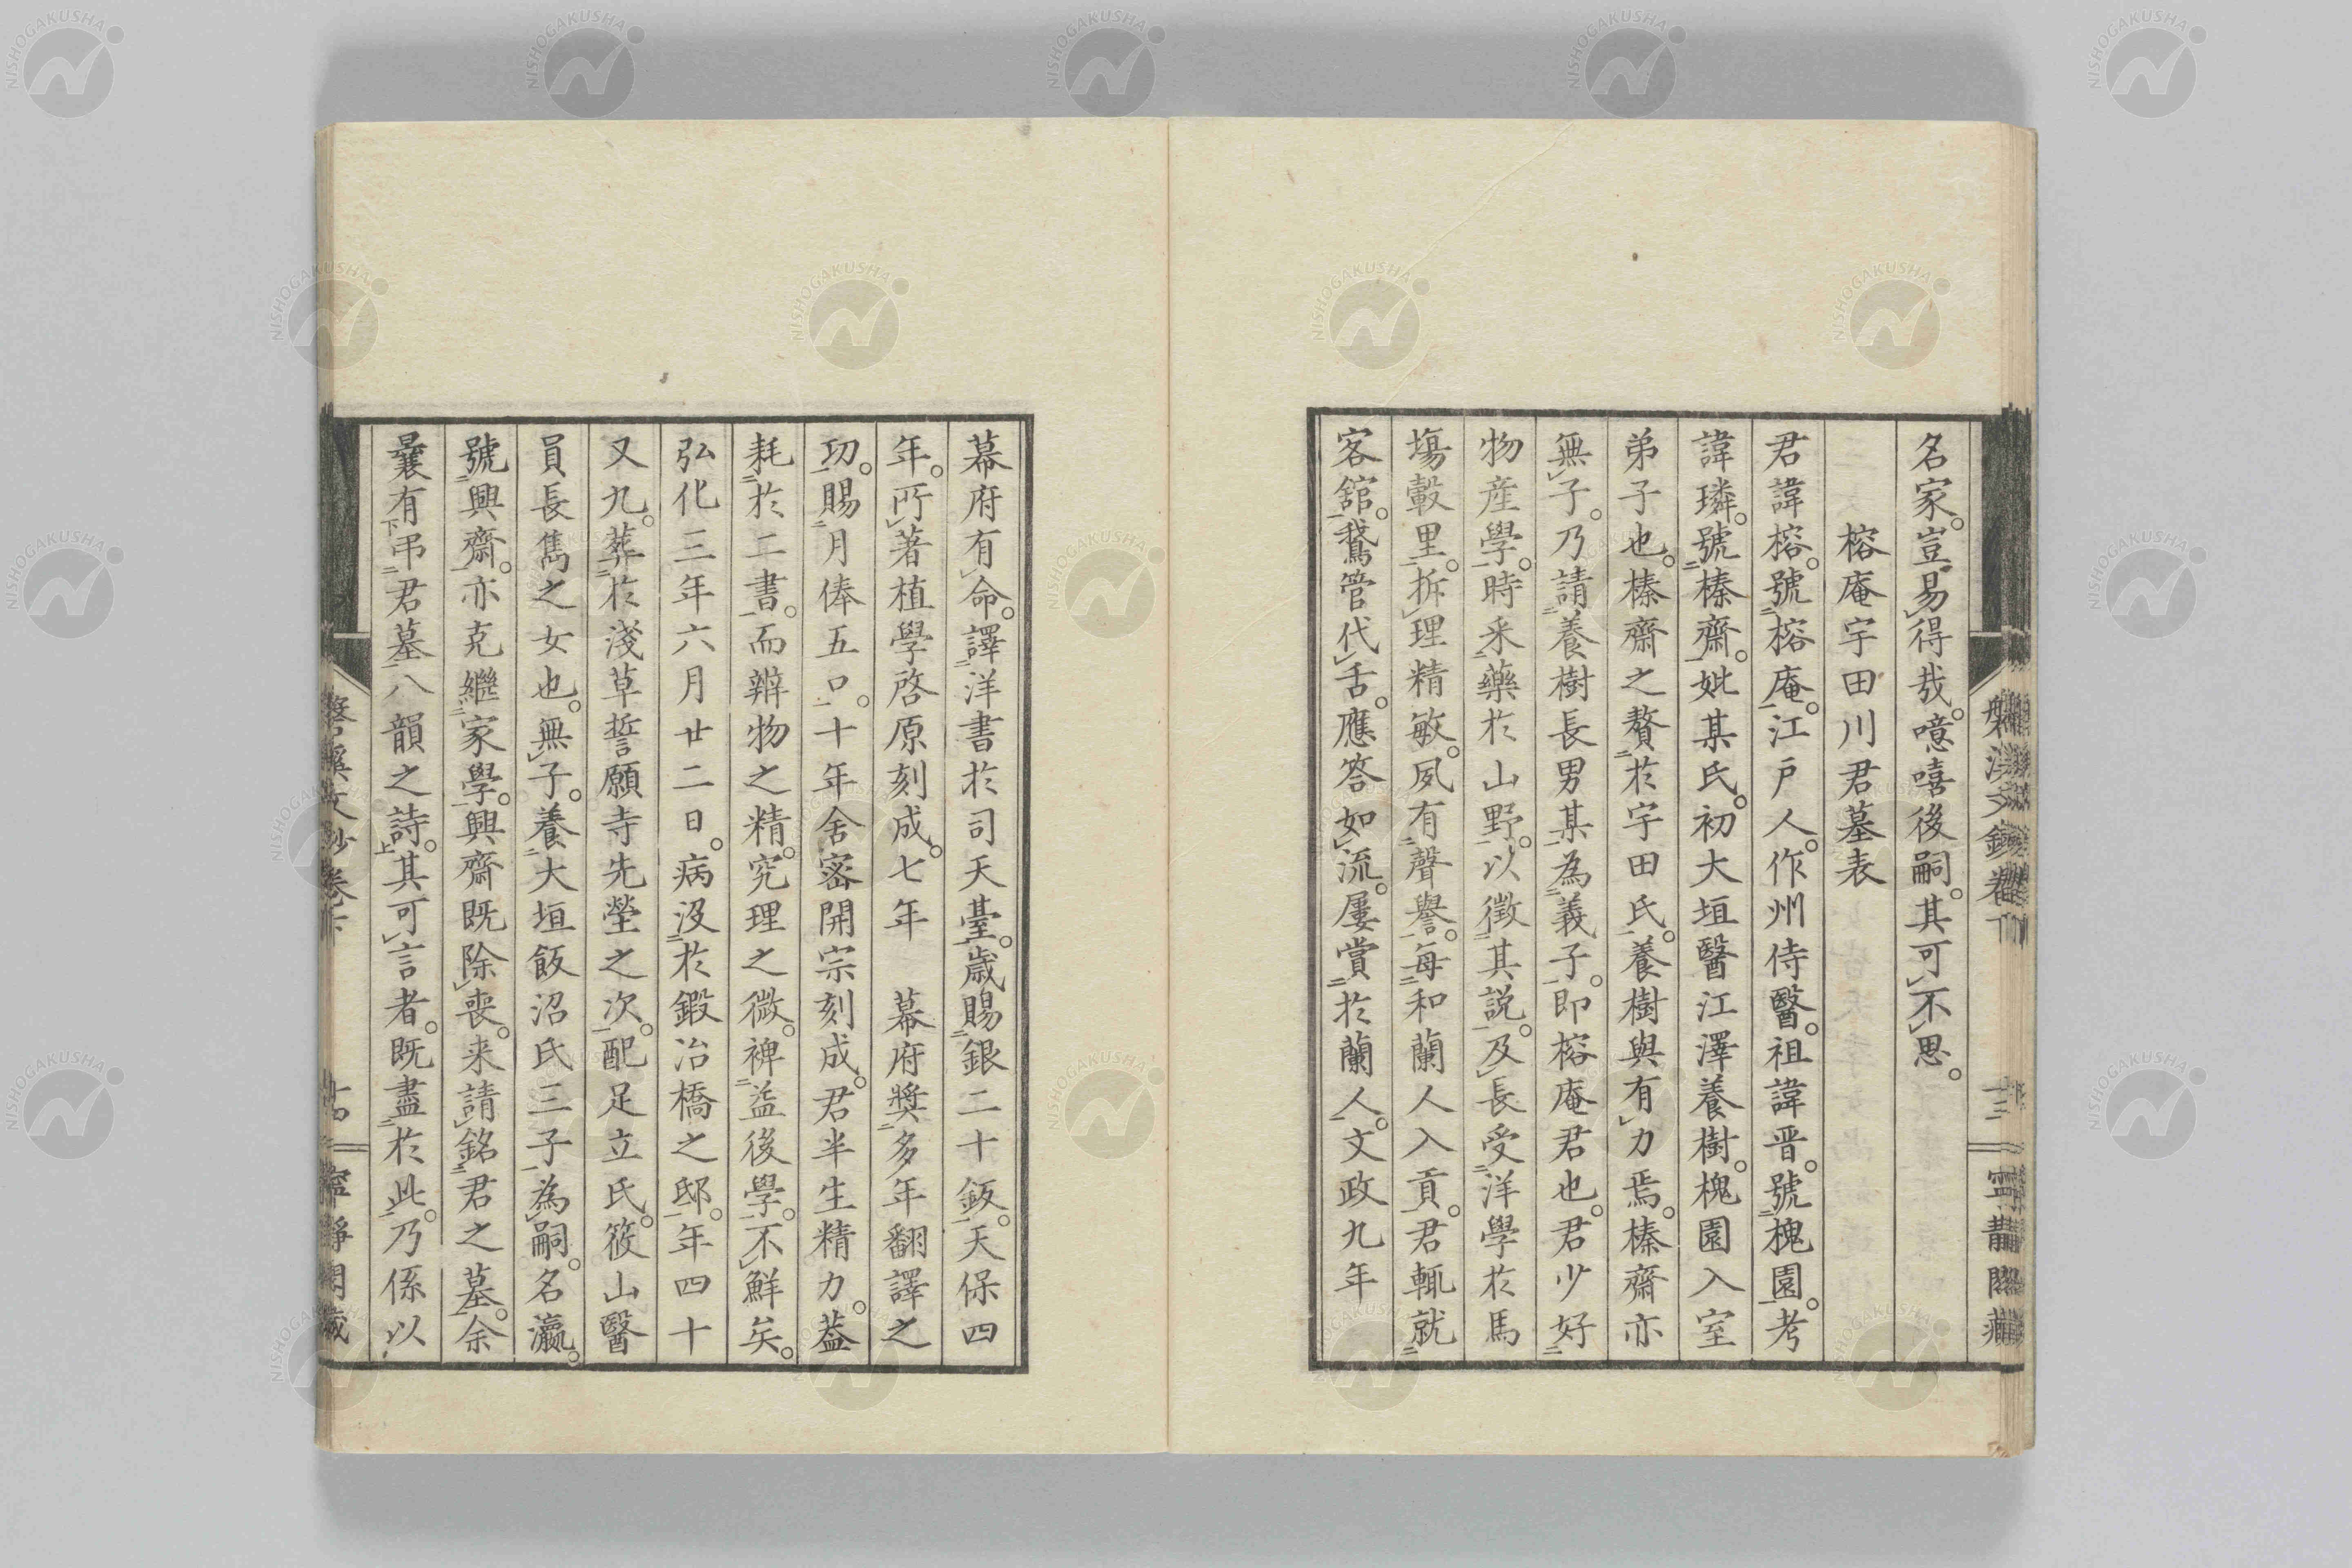 名家。豈易得哉。噫嘻後嗣。其可不思。
榕庵宇田川君墓表
君諱榕。號榕庵。江戸人。作州侍醫。祖諱晋。號槐園。考
諱璘。號榛齋。妣某氏。初大垣醫江澤養樹。槐園入室
弟子也。榛齋之贅於宇田氏。養樹與有力焉。榛齋亦
無子。乃請養樹長男某為義子。即榕庵君也。君少好
物産學。時釆藥於山野。以徴其説。及長受洋學於馬
塲轂里。拆理精敏。夙有聲譽。毎和蘭人入貢。君輒就
客舘。鵞管代舌。應答如流。屢賞於蘭人。文政九年
幕府有命。譯洋書於司天臺。歳賜銀二十鈑。天保四
年。所著植學啓原刻成。七年　幕府奬多年翻譯之
功。賜月俸五口。十年舎密開宗刻成。君半生精力。葢
耗於二書。而辨物之精。究理之微。裨益後學。不鮮矣。
弘化三年六月廿二日。病沒於鍛冶橋之邸。年四十
又九。葬於淺草誓願寺先塋之次。配足立氏。筱山醫
員長雋之女也。無子。養大垣飯沼氏三子為嗣。名瀛。
號興齋。亦克繼家學。興齋既除喪。来請銘君之墓。余
曩有弔君墓八韻之詩。其可言者。既盡於此。乃係以
磐溪文鈔卷下
十三
寧靜閣藏
NISHOGAKUSHA